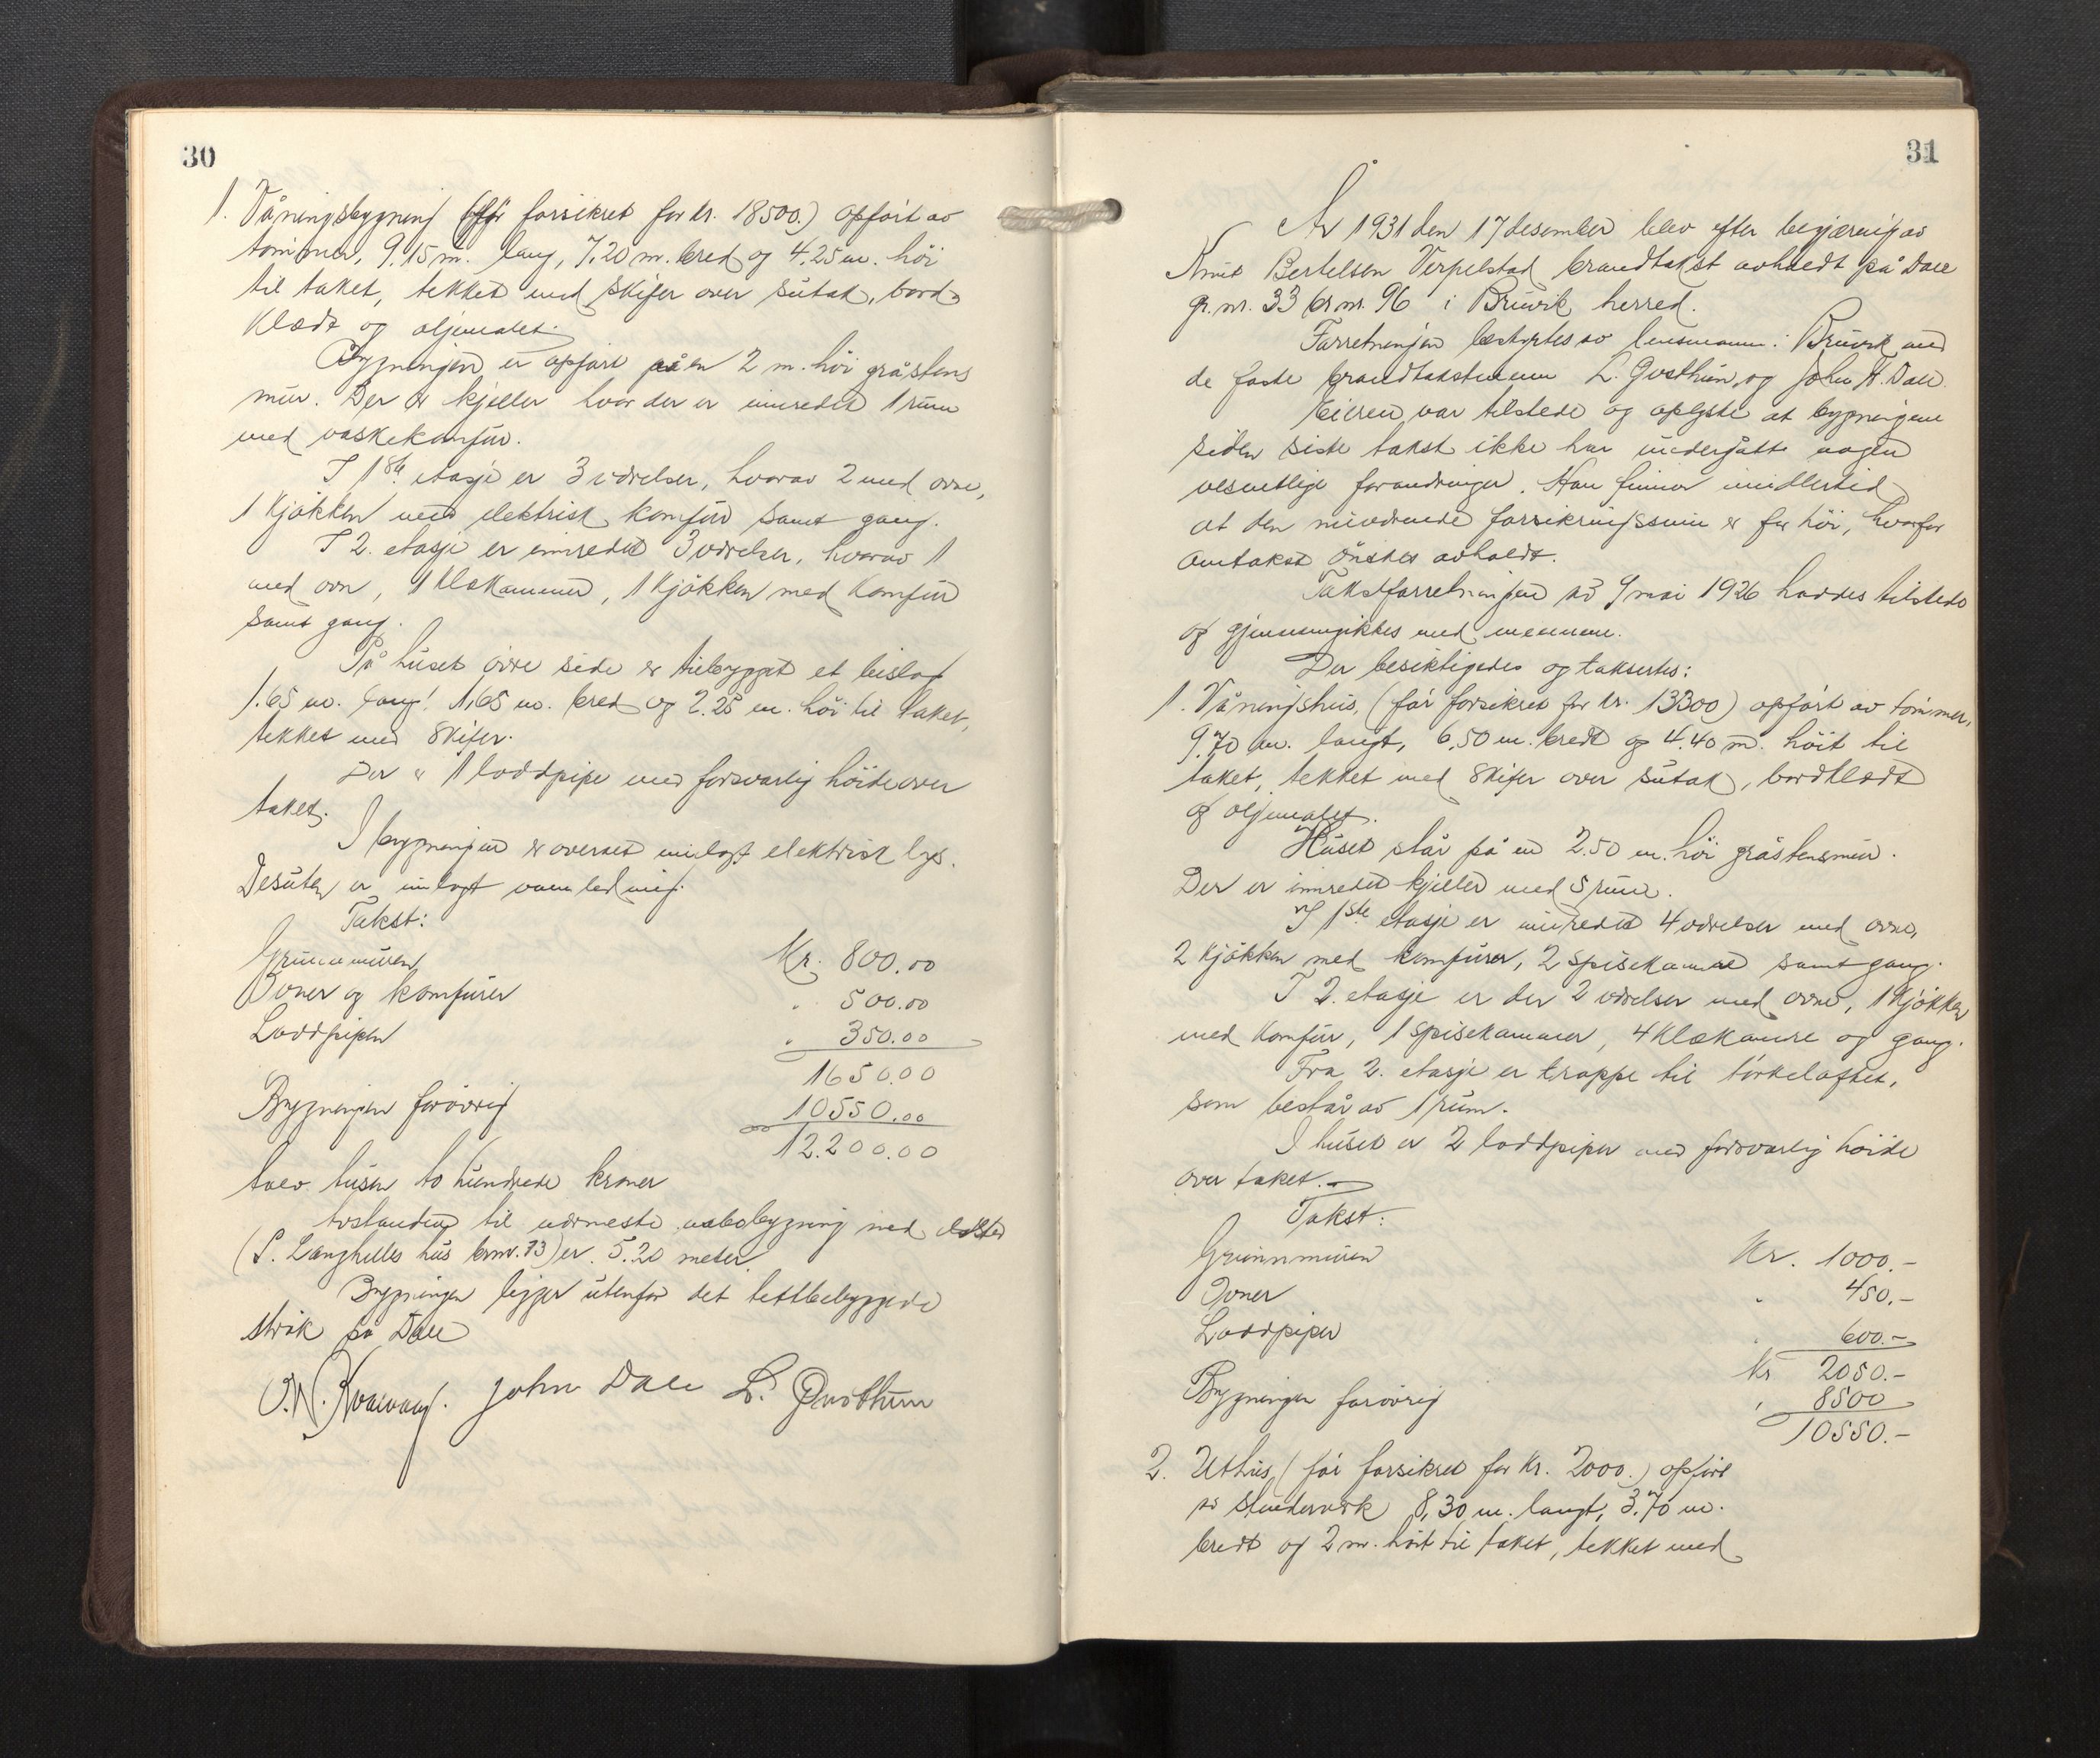 30
1. Våningsbygning (før forsikret for kr. 18500.) opført av
tømmer, 9.15 m. lang, 7,20 m. bred og 4.25 m. høi
til taket, tekket med skifer over sutak, bord-
klædt og oljemalet.
Bygningen er opført på en 2 m. høi gråstens
mur. Der er kjeller hvor der er innredet 1 rum
med vaskekomfur.
I 1ste etasje er 3 værelser, hvorav 2 med ovne,
1 kjøkken med elektrisk komfur samt gang.
I 2. etasje er innredet 3 værelser, hvorav 1
med ovn, 1 klækammer, 1 kjøkken med komfur
samt gang.
På huset øvre side er tilbygget et bislag
1.65 m. lang, 1,65 m. bred og 2.25 m. høi til taket,
tekket med skifer.
Der er 1 loddpipe med forsvarlig høide over
taket.
I bygningen er overalt innlagt elektrisk lys.
Desuten er innlagt vannledning.
Takst:
Grunnmuren Kr. 800.00
Ovner og komfurer " 500.00
Loddpipen " 350.00
1650.00
Bygningen forøvrig 10550.00
12.200.00
tolv tusen to hundrede kroner
Avstanden til nærmeste nabobygning med ildsted
(S. Langhelles hus brnr. 73) er 5.20 meter.
Bygningen ligger utenfor det tettbebyggede
strøk på Dale
O.N. Kvamvaag. John Dale L. Gusthun
31
År 1931 den 17 desember blev efter begjæring av
Knut Bertelsen Verpelstad brandtakst avholdt på Dale
gr. nr. 33 br. nr. 96 i Bruvik herred.
Forretningen bestyrtes av lensmannen i Bruvik med
de faste brandtakstmenn L. Gusthun og John K. Dale.
Eieren var tilstede og oplyste at bygningene
siden siste takst ikke har undergått nogen
vesentlige forandringer. Han finner imidlertid
at den nuværende forsikringssum er for høi, hvorfor
omtakst ønskes avholdt.
Takstforretningen av 9 mai 1926 haddes tilstede
og gjennemgikkes med mennene.
Der besiktigedes og taksertes:
1. Våningshus, (før forsikret for kr. 13300) opført av tømmer,
9.70 m. langt, 6,50 m. bredt og 4.40 m. høit til
taket, tekket med skifer over sutak, bordklædt
og oljemalet.
Huset står på en 2.50 m. høi gråstensmur.
Der er innredet kjeller med 5 rum.
I 1ste etasje er innredet 4 værelser med ovne,
2 kjøkken med komfurer, 2 spisekammer samt gang.
I 2. etasje er der 2 værelser med ovne, 1 kjøkken
med komfur, 1 spisekammer, 4 klækamre og gang.
Fra 2. etasje er trappe til tørkeloftet,
som består av 1 rum.
I huset er 2 loddpiper med forsvarlig høide
over taket.
Takst:
Grunnmuren Kr. 1000.-
Ovner " 450.-
Loddpiper " 600.-
Kr 2050.-
Bygningen forøvrig " 8500
10550.-
2. Uthus, (før forsikret for Kr. 2000.) opført
av stenderverk 8,30 m. langt, 3.70 m.
bredt og 2 m. høit til taket, tekket med